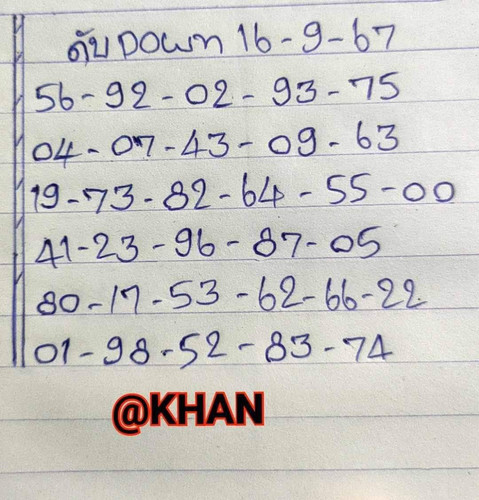 ดับDOWท 16-9-67
56-92-02-93-75
04-07-43-09-63
19-73-82-64-55-00
41-23-96-87-05
80-17-53-62-66-22
01-98-52-83-74
@KHAN